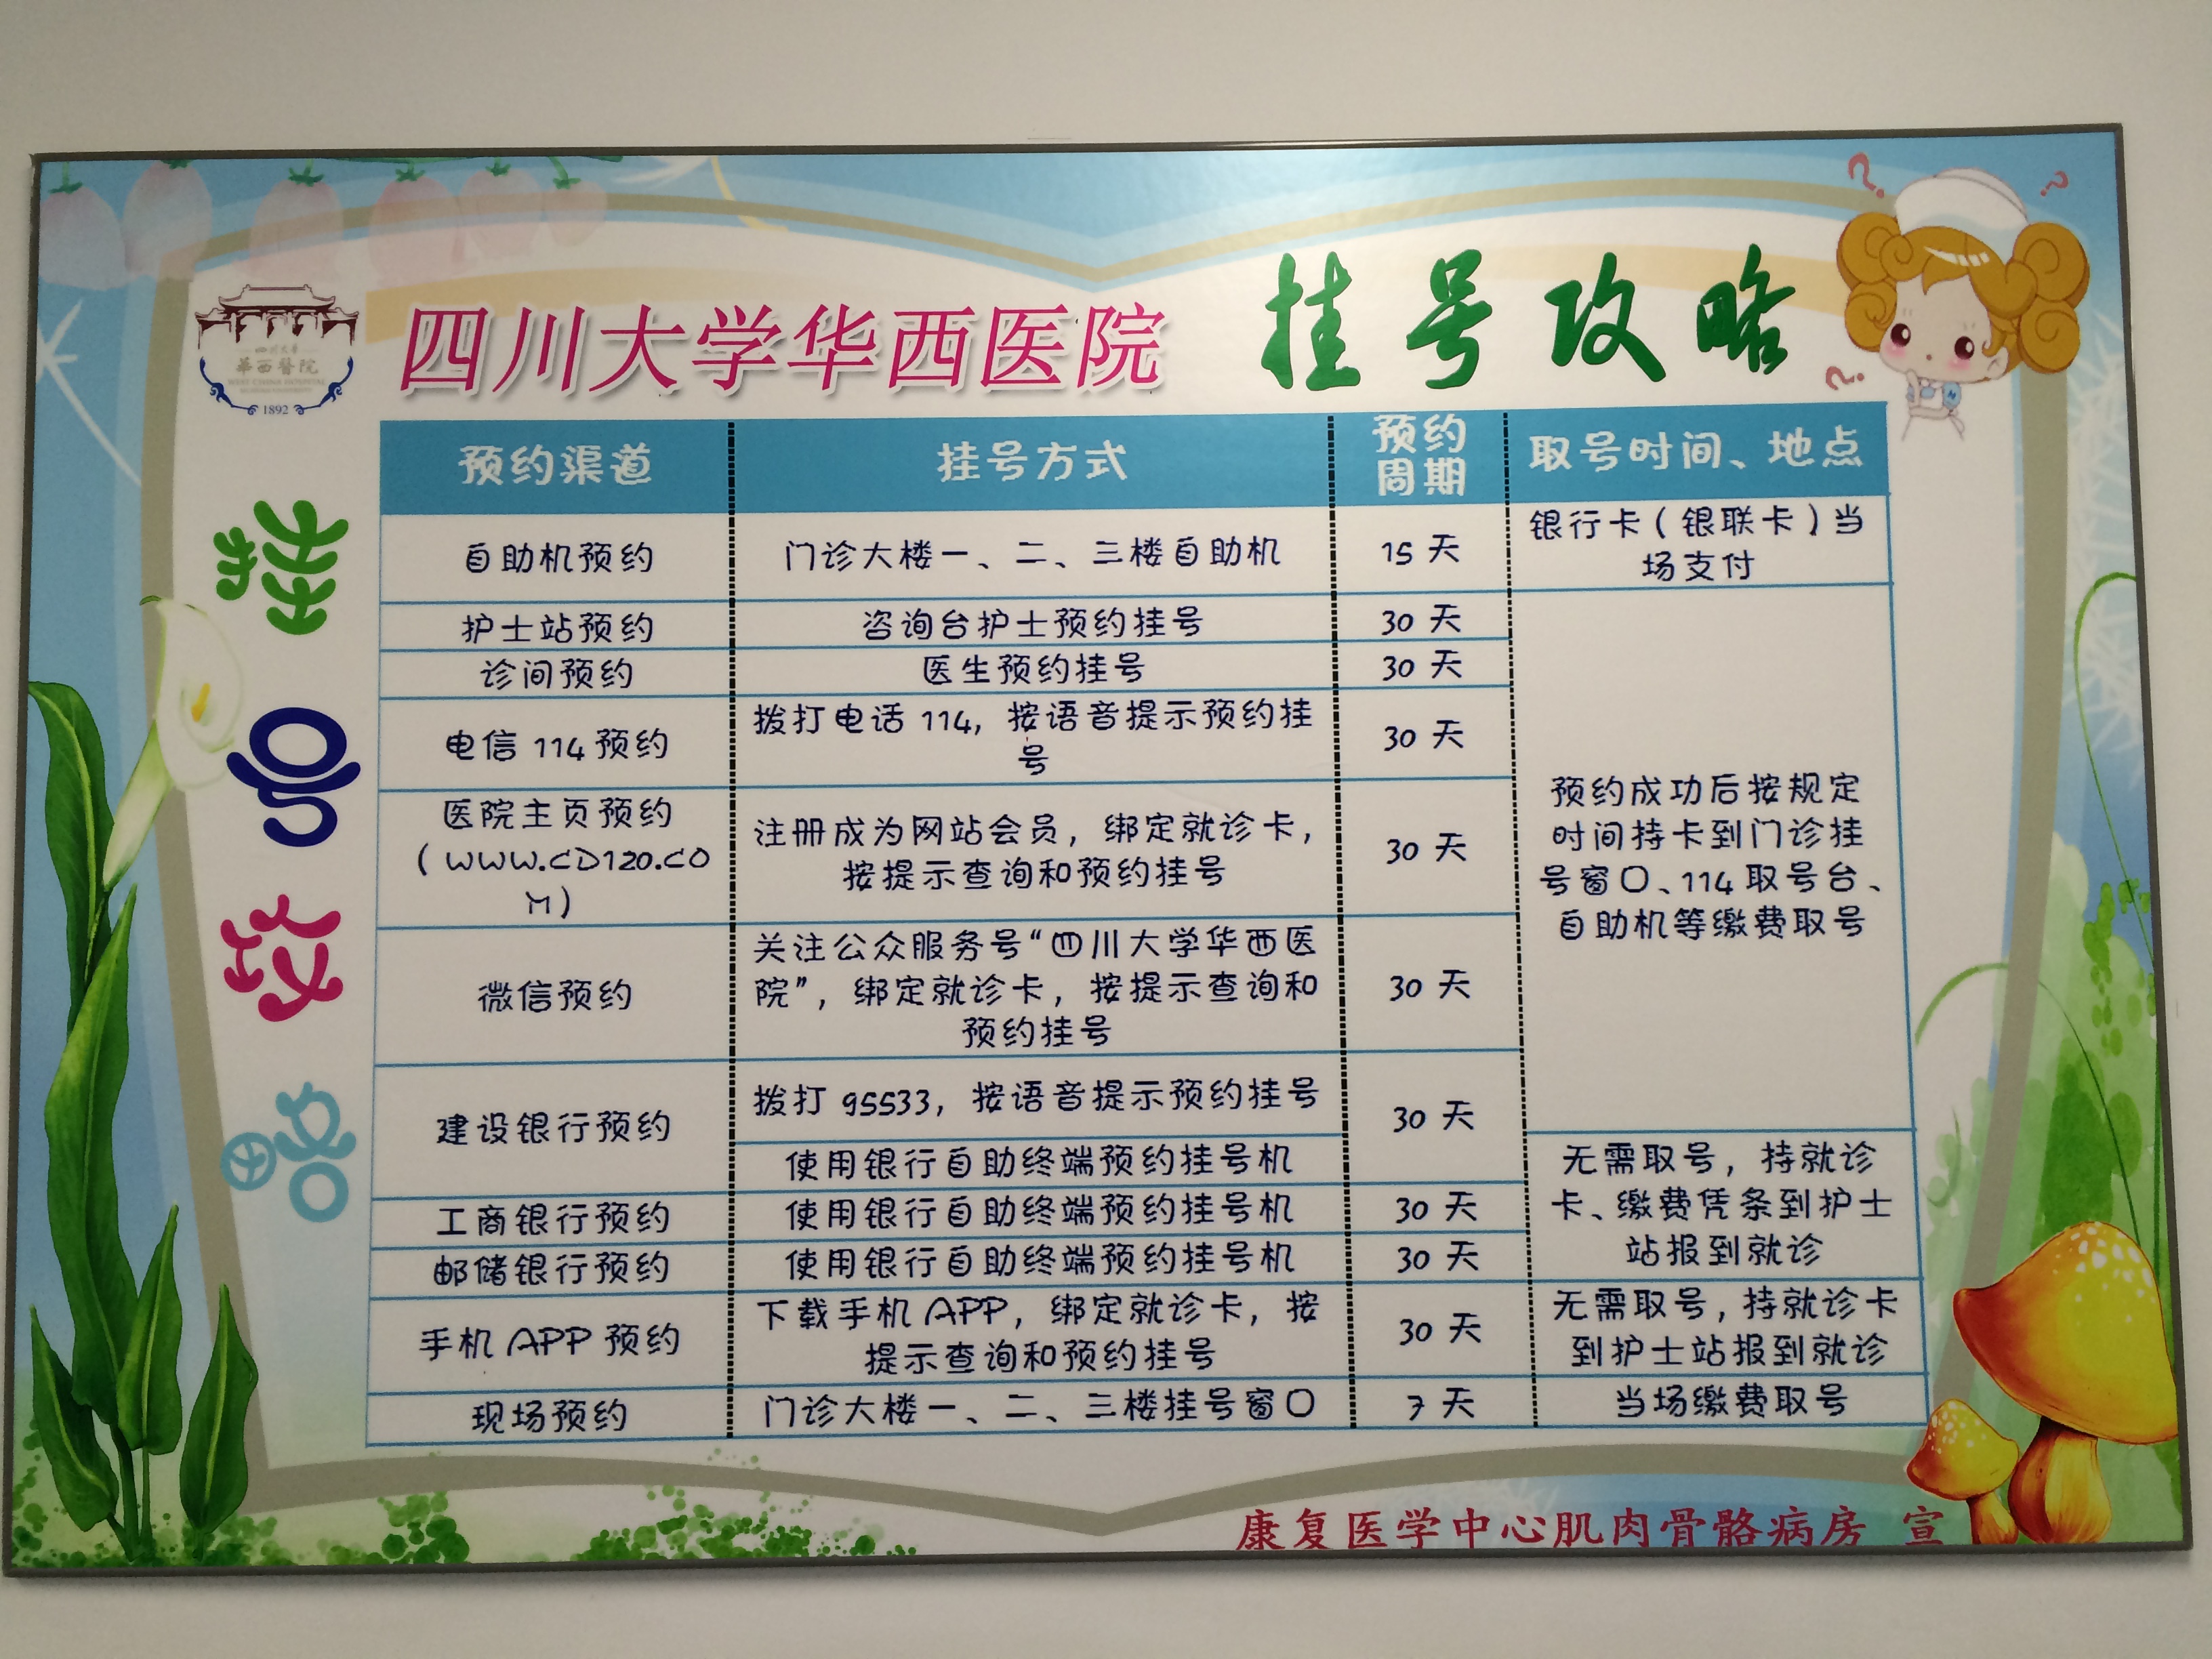 四川大学
華西醫院
WEST CHINA HOSPITAL
1892
四川大学华西医院
挂号攻略
挂号攻略
预约渠道
挂号方式
预约
周期
取号时间、地点
自助机预约
门诊大楼一、二、三楼自助机
15 天
银行卡（银联卡）当
场支付
护士站预约
咨询台护士预约挂号
30 天
诊间预约
医生预约挂号
30 天
电信 114 预约
拨打电话 114，按语音提示预约挂
号
30 天
医院主页预约
（WWW.CD120.CO
M）
注册成为网站会员，绑定就诊卡，
按提示查询和预约挂号
30 天
微信预约
关注公众服务号“四川大学华西医
院”，绑定就诊卡，按提示查询和
预约挂号
30 天
预约成功后按规定
时间持卡到门诊挂
号窗口、114 取号台、
自助机等缴费取号
建设银行预约
拨打 95533，按语音提示预约挂号
使用银行自助终端预约挂号机
30 天
工商银行预约
使用银行自助终端预约挂号机
30 天
邮储银行预约
使用银行自助终端预约挂号机
30 天
无需取号，持就诊
卡、缴费凭条到护士
站报到就诊
手机 APP 预约
下载手机 APP，绑定就诊卡，按
提示查询和预约挂号
30 天
无需取号，持就诊卡
到护士站报到就诊
现场预约
门诊大楼一、二、三楼挂号窗口
7 天
当场缴费取号
康复医学中心肌肉骨骼病房 宣